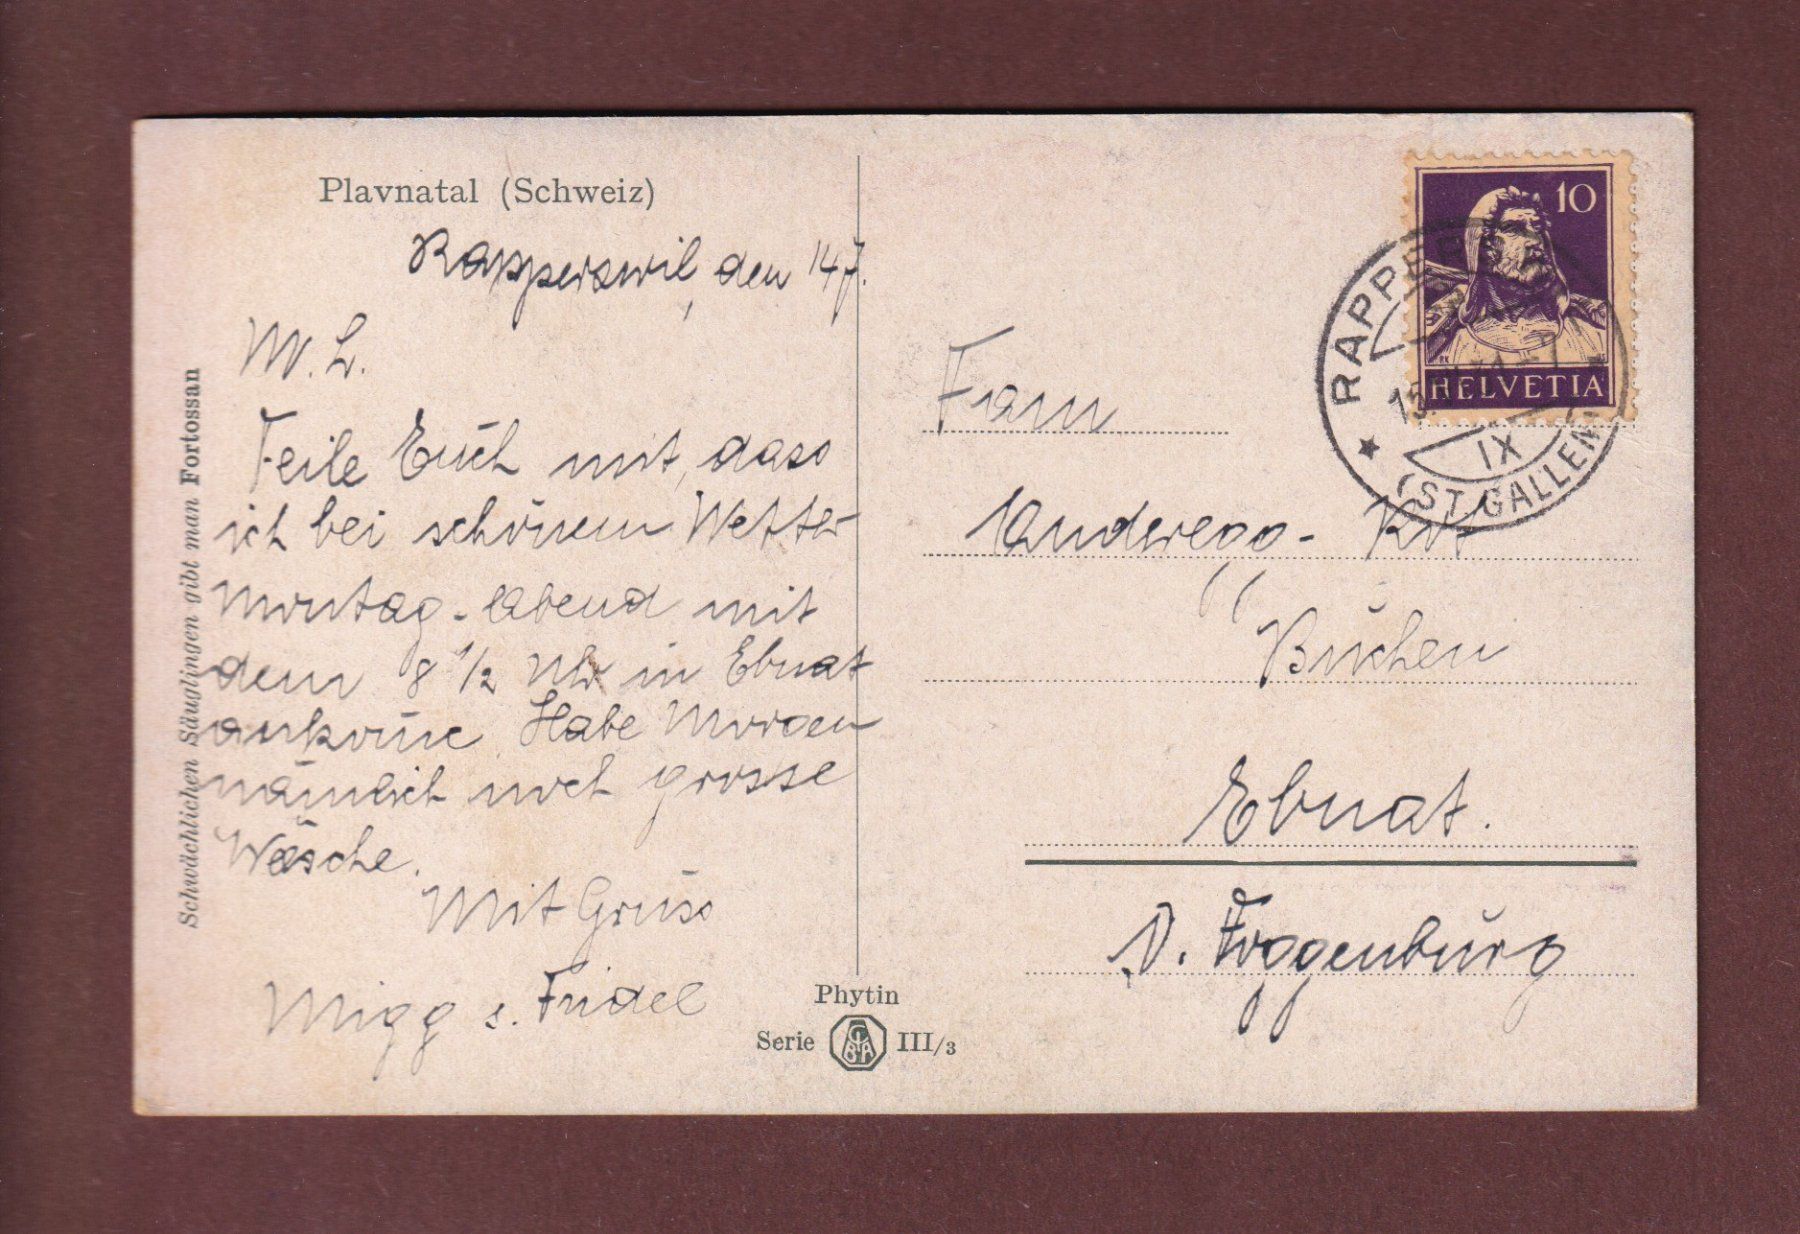 Plavnatal (Schweiz)
Rapperswil, den 14.7.
M. L.
Teile Euch mit, dass
ich bei schönem Wetter
Montag-Abend mit
dem 8 1/2 Uhr in Ebnat
ankome. Habe Morgen
nämlich noch grosse
Wäsche.
Mit Gruss
Migg s. Fridel
Schwächlichen Säuglingen gibt man Fortossan
Phytin
Serie III/3
10
HELVETIA
RAPPERS
IX
(ST. GALLEN)
Frau
Anderegg - Kot
Büchen
Ebnat.
Toggenburg